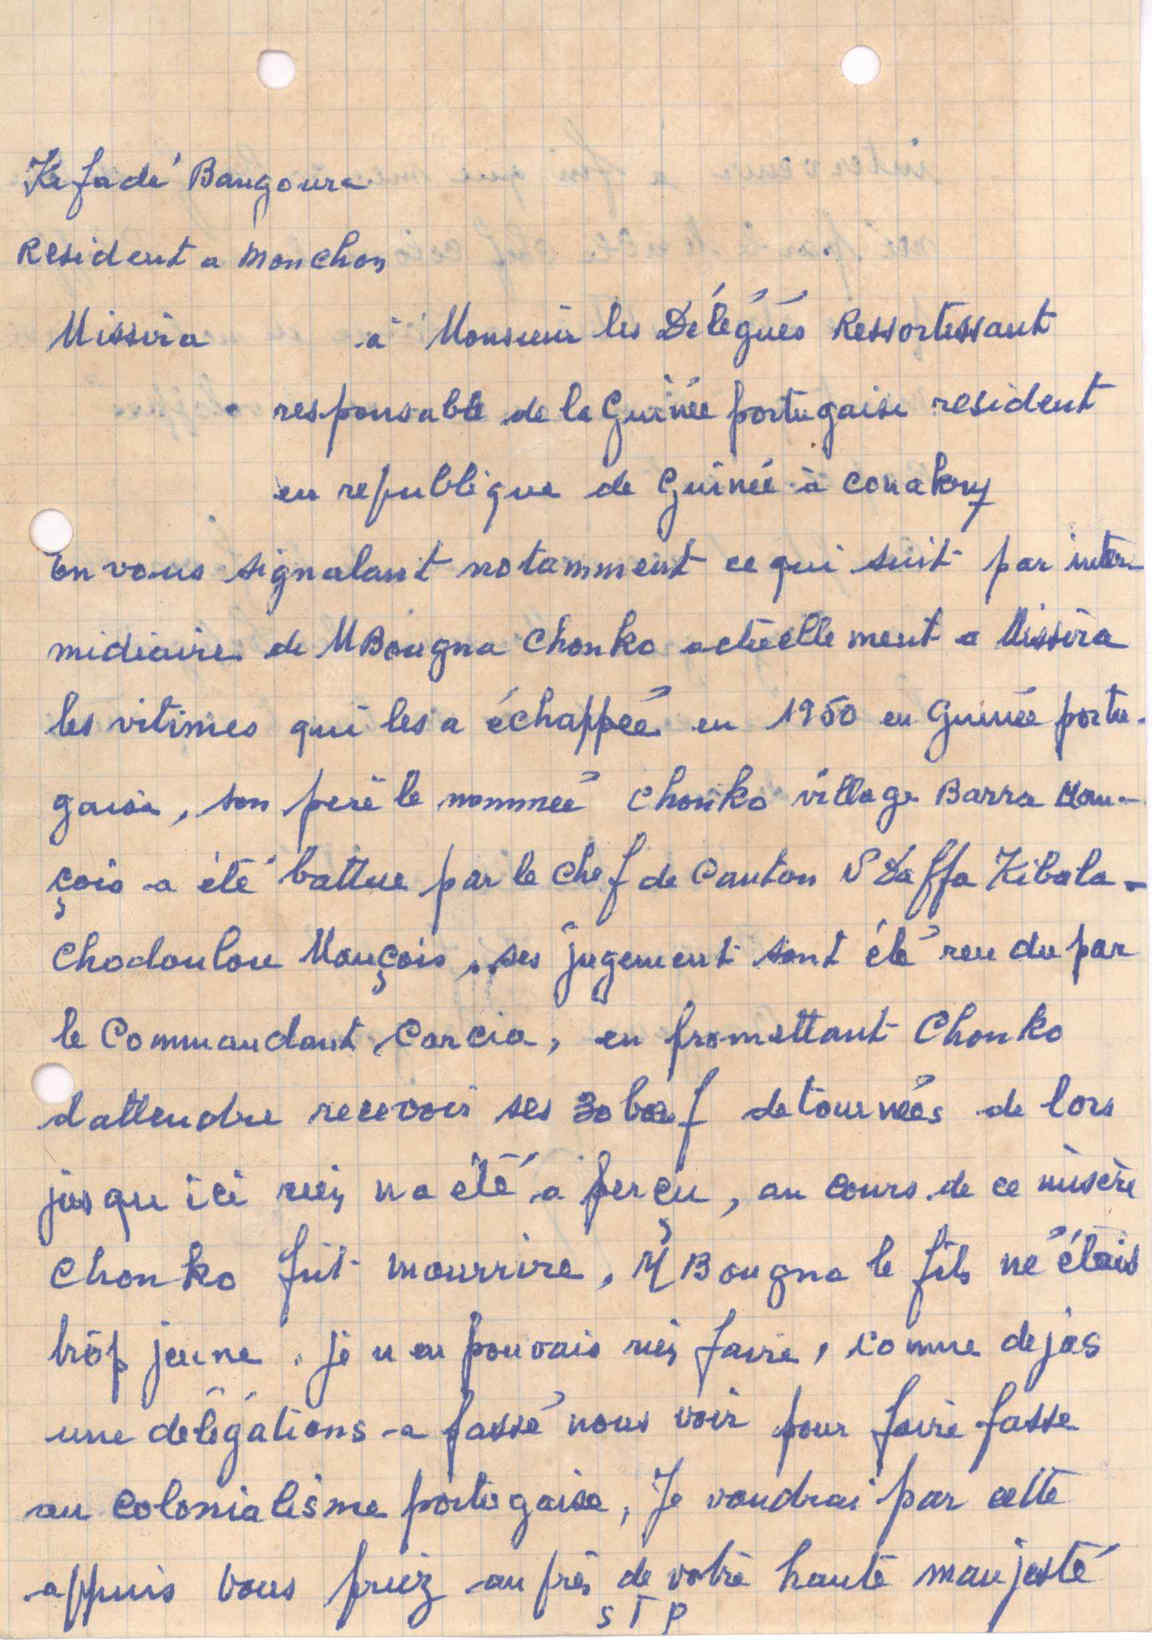 Kéfadé Bangoura
Resident a Monchon
Missira à Monsieur les Délégués Ressortessant
responsable de la Guinée portugaise resident
en republique de Guinée à Conakry
En vous signalant notamment ce qui suit par inter-
midiaire de MBougna Chonko actuellement a Missira
les vitimes qui les a échappéé en 1950 en Guinée portu-
gaise, son peré le nommée Chonko village Barra Man-
çois a été battue par le chef de Canton N'Daffa Kibala-
Chodoulou Mançois, ses jugement sont été rendu par
le Commandant Carcia, en promettant Chonko
dattendre recevoir ses 30 bœuf detournées de lors
jusqu ici rien n a été a perçu, au cours de ce misère
Chonko fut mourrire, M'Bougna le fils né étais
trôp jeune. je n en pouvais rien faire, comme dejas
une delégations a passé nous voir pour faire fasse
au colonialisme portugaise, Je voudrai par cette
appuis vous priez auprès de votre haute maujesté
S T P